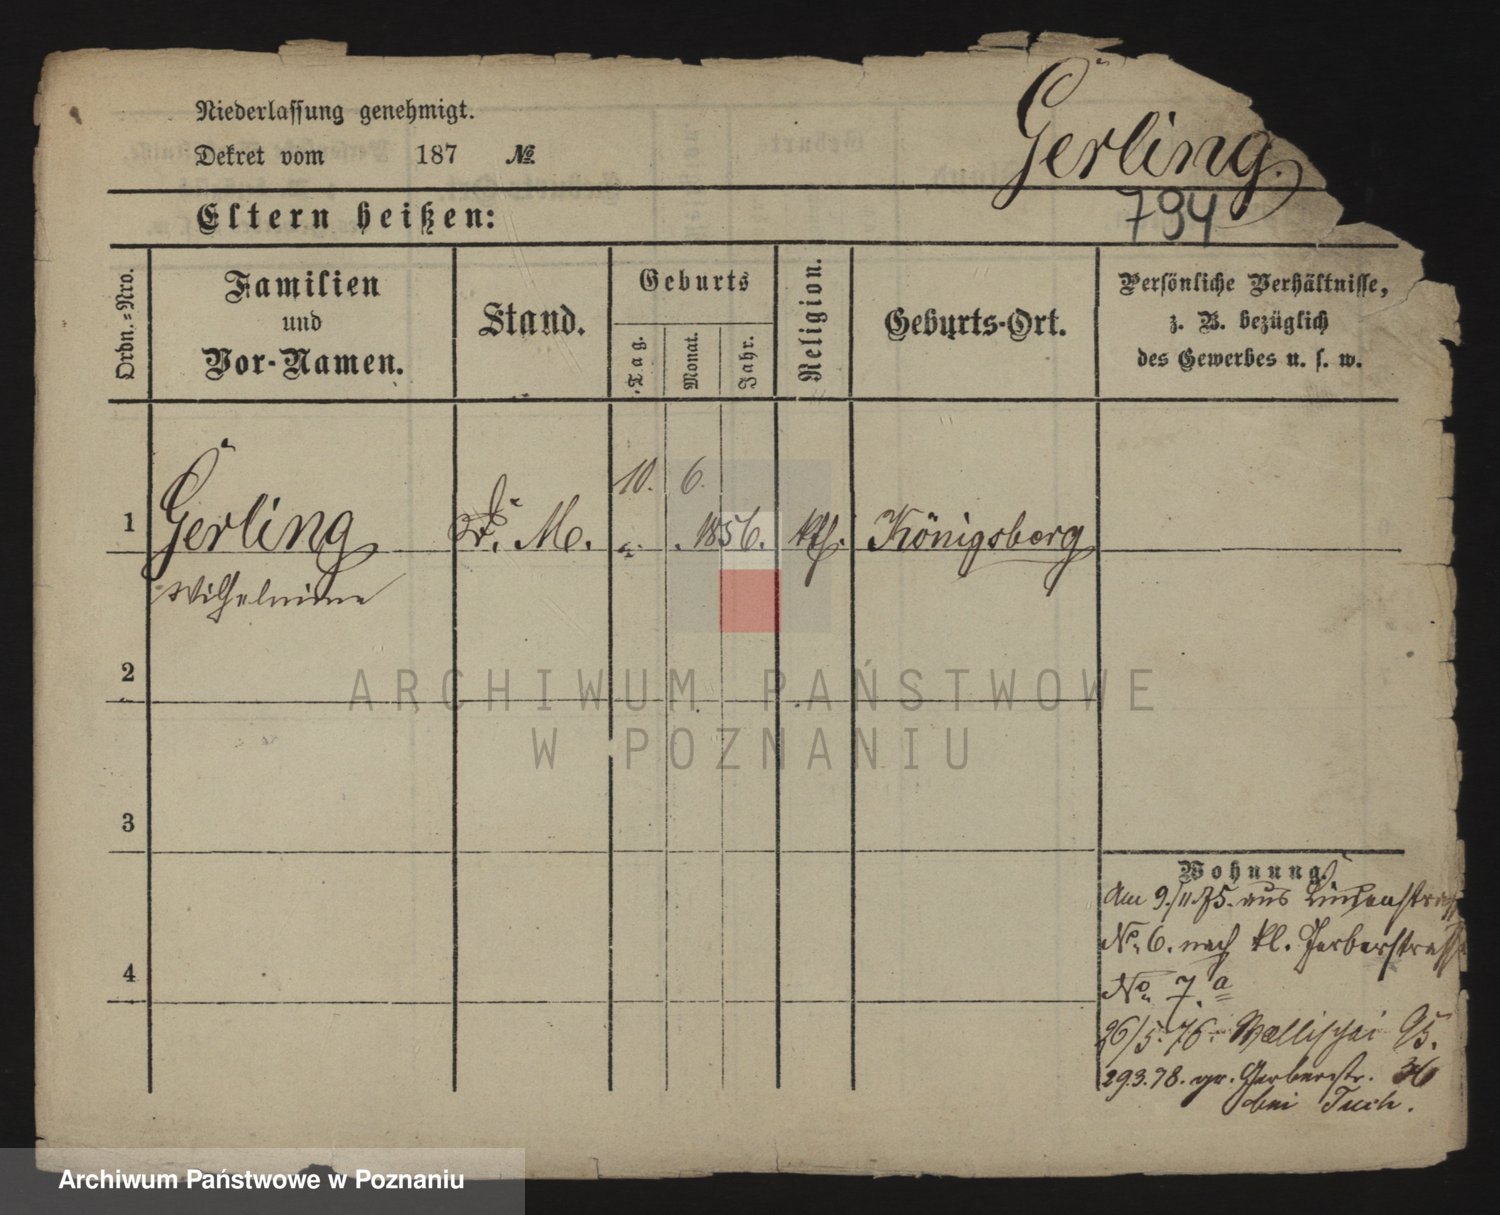 Gerling.
794
Niederlassung genehmigt.
Dekret vom 187 №
Eltern heißen:
Ordn.=Nro.
Familien
und
Vor-Namen.
Stand.
Geburts
Tag.
Monat.
Jahr.
Religion.
Geburts-Ort.
Persönliche Verhältnisse,
z. B. bezüglich
des Gewerbes u. s. w.
10. 6.
1 Gerling D. M. 1856. kth. Königsberg
Wilhelmine
2
3
4
Wohnung.
Am 9./11 75. aus
No. 6. nach kl. Gerberstrasse
No. 7.a
26/5. 76. Wallischei 95.
29.3.78. gr. Gerberstr. 36
bei Tuch.
ARCHIWUM PAŃSTWOWE
W POZNANIU
Archiwum Państwowe w Poznaniu